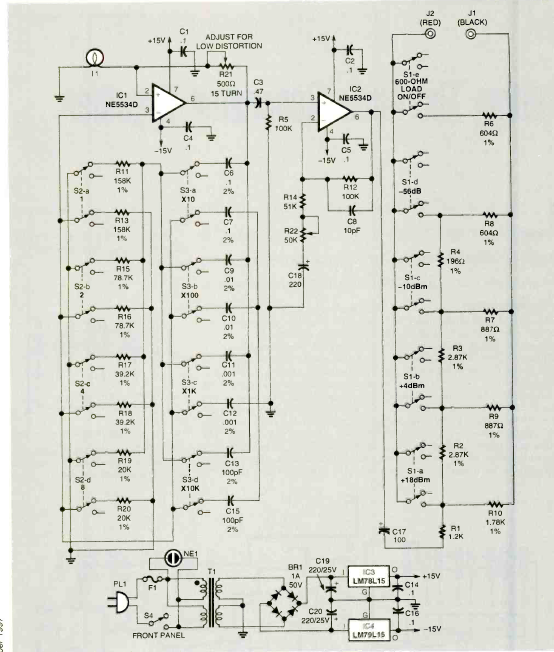 J2
(RED)
J1
(BLACK)
+15V
C1
.1
ADJUST FOR
LOW DISTORTION
R21
500Ω
15 TURN
I1
IC1
NE5534D
2
3
7
6
4
C4
.1
–15V
C3
.47
R5
100K
+15V
C2
.1
IC2
NE5534D
3
2
7
6
4
C5
.1
–15V
R12
100K
C8
10pF
R14
51K
R22
50K
C18
220
S1-e
600-OHM
LOAD
ON/OFF
R6
604Ω
1%
S1-d
–56dB
R8
604Ω
1%
R4
196Ω
1%
S1-c
–10dBm
R7
887Ω
1%
R3
2.87K
1%
S1-b
+4dBm
R9
887Ω
1%
R2
2.87K
1%
S1-a
+18dBm
R10
1.78K
1%
R1
1.2K
C17
100
R11
158K
1%
S2-a
1
R13
158K
1%
R15
78.7K
1%
S2-b
2
R16
78.7K
1%
R17
39.2K
1%
S2-c
4
R18
39.2K
1%
R19
20K
1%
S2-d
8
R20
20K
1%
C6
.1
2%
S3-a
X10
C7
.1
2%
C9
.01
2%
S3-b
X100
C10
.01
2%
C11
.001
2%
S3-c
X1K
C12
.001
2%
C13
100pF
2%
S3-d
X10K
C15
100pF
2%
NE1
PL1
F1
S4
FRONT PANEL
T1
BR1
1A
50V
C19
220/25V
C20
220/25V
I
IC3
LM78L15
O
G
+15V
C14
.1
C16
.1
G
I
IC4
LM79L15
O
–15V
1997